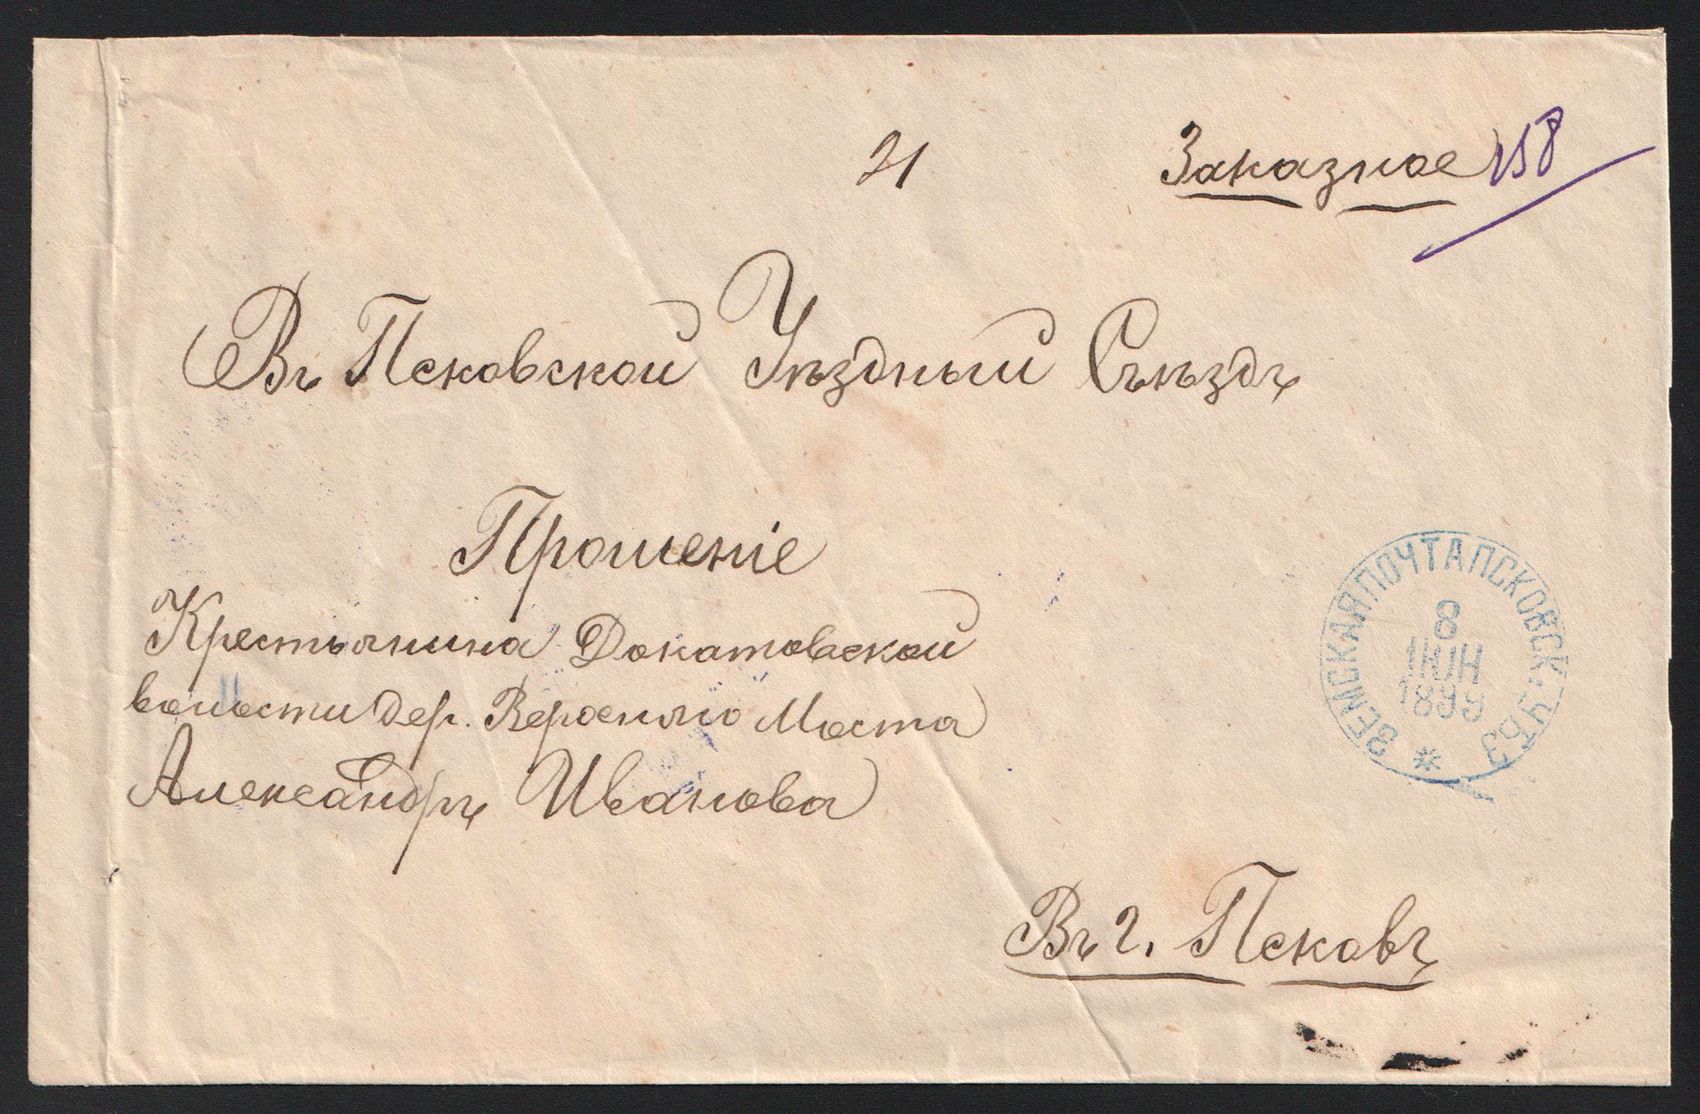 21
Заказное 158
Въ Псковской Уѣздный Съѣздъ
Прошеніе
Крестьянина Докатовской
волости дер. Моста
Александръ Иванова
ЗЕМСКАЯ ПОЧТА ПСКОВСК. УѢЗ
8
ІЮН
1899
Въ г. Псковъ